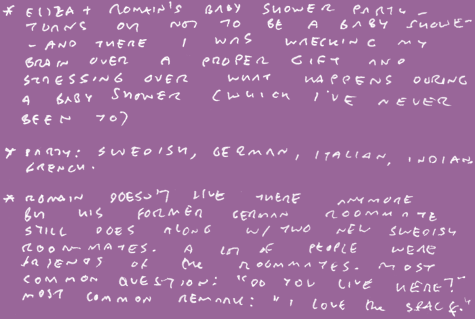 * ELIZA + ROMAIN'S BABY SHOWER PARTY –
TURNS OUT NOT TO BE A BABY SHOWER
– AND THERE I WAS WRECKING MY
BRAIN OVER A PROPER GIFT AND
STRESSING OVER WHAT HAPPENS DURING
A BABY SHOWER (WHICH I'VE NEVER
BEEN TO)
* PARTY: SWEDISH, GERMAN, ITALIAN, INDIAN
FRENCH.
* ROMAIN DOESN'T LIVE THERE ANYMORE
BUT HIS FORMER GERMAN ROOMMATE
STILL DOES ALONG W/ TWO NEW SWEDISH
ROOMMATES. A LOT OF PEOPLE WERE
FRIENDS OF the ROOMMATES. MOST
COMMON QUESTION: "DO YOU LIVE HERE?"
MOST COMMON REMARK: "I LOVE the SPACE."